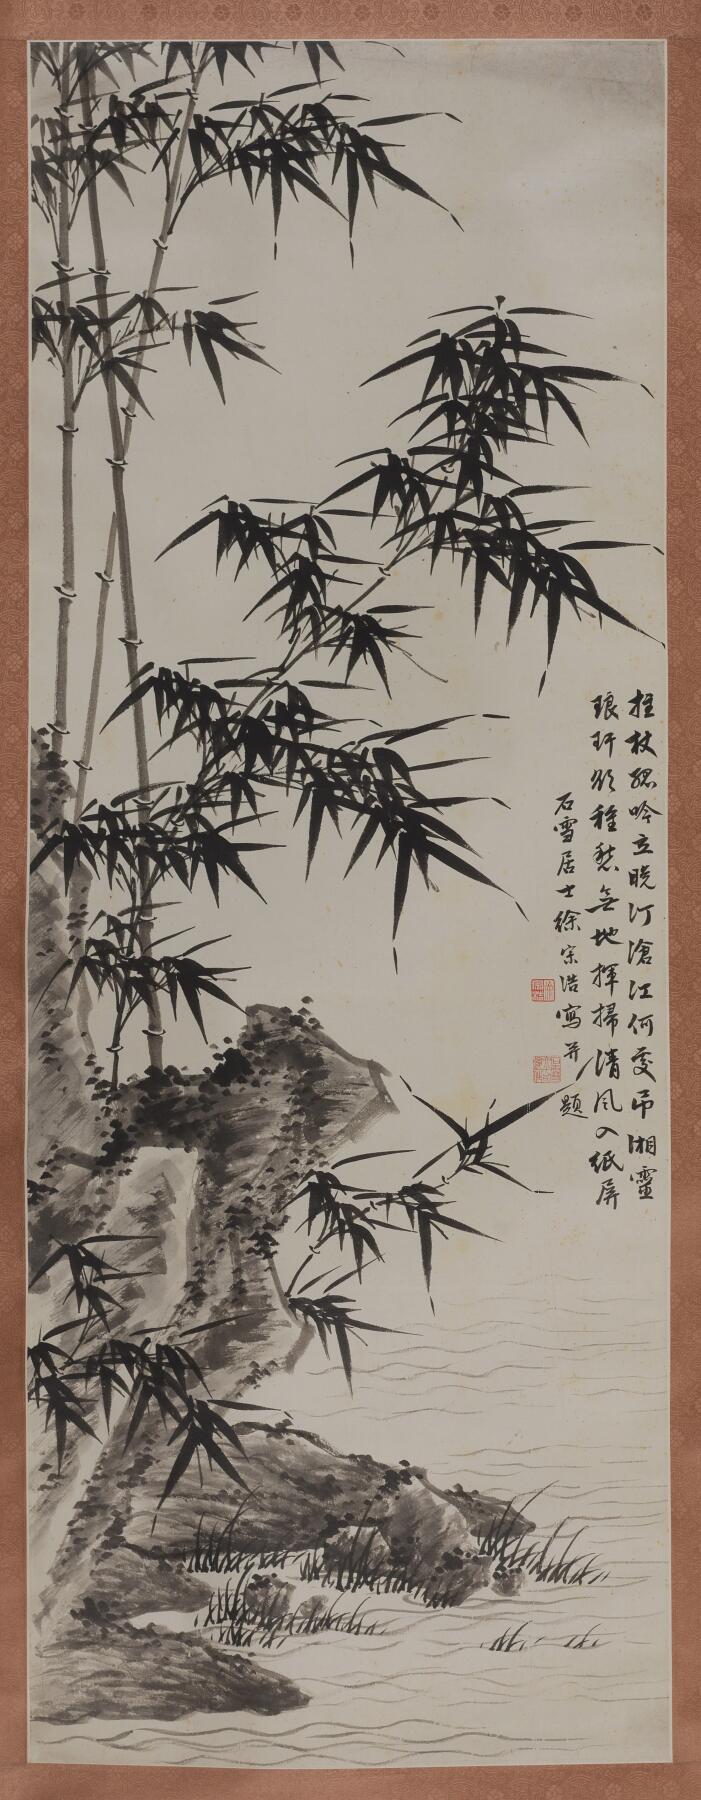 拄杖孤吟立晚汀滄江何處吊湘靈
琅玕欲種愁無地揮掃清風入紙屏
石雪居士徐宗浩寫并題